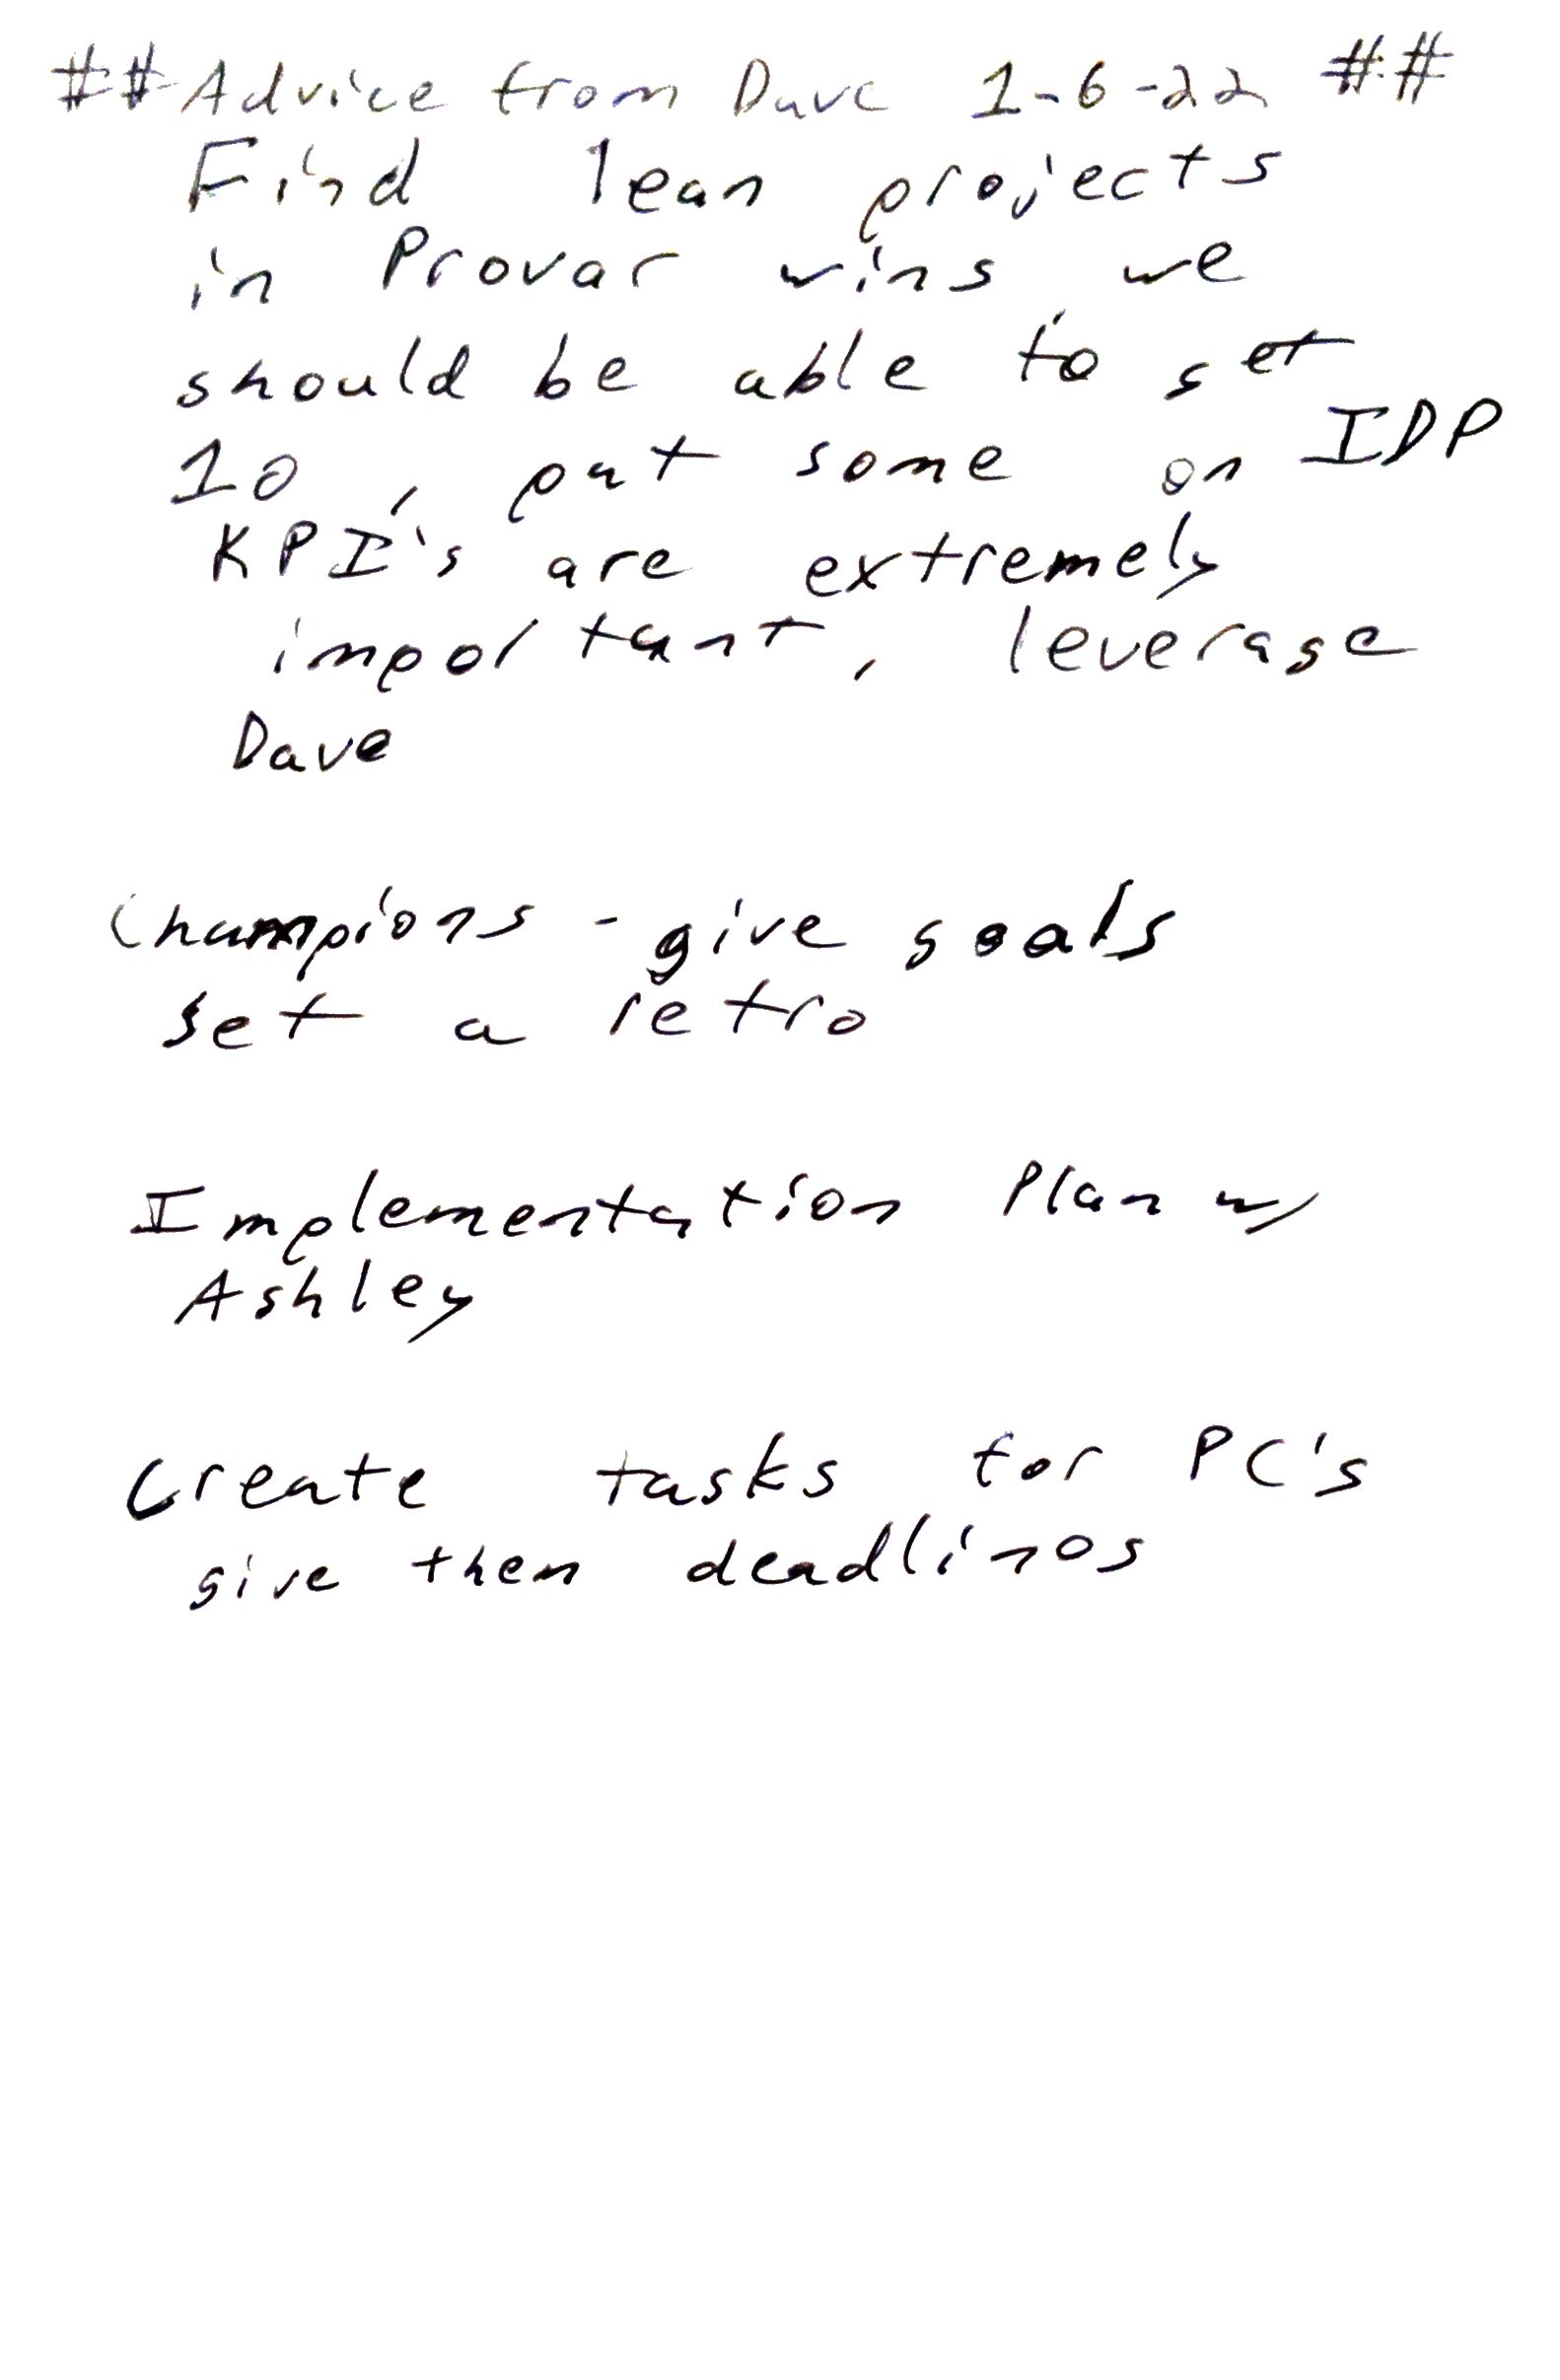 ##Advice from Dave 1-6-22 ##
Find lean projects
in Provar wins we
should be able to get
10, put some on IDP
KPI's are extremely
important, leverage
Dave
Champions - give goals
set a retro
Implementation Plan w/
Ashley
Create tasks for PC's
give them deadlines